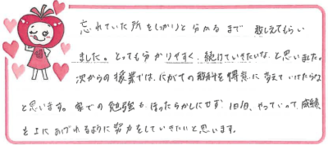 忘れていた所をしっかりと分かるまで 教えてもらい
ました。とっても分かりやすく、続けていきたいな、と思いました。
次からの授業では、にがての教科を得意に変えていけたらな
と思います。家での勉強も、ほったらかしにせず 1日1日、やっていって、成績
を上にあげれるように努力をしていきたいと思います。